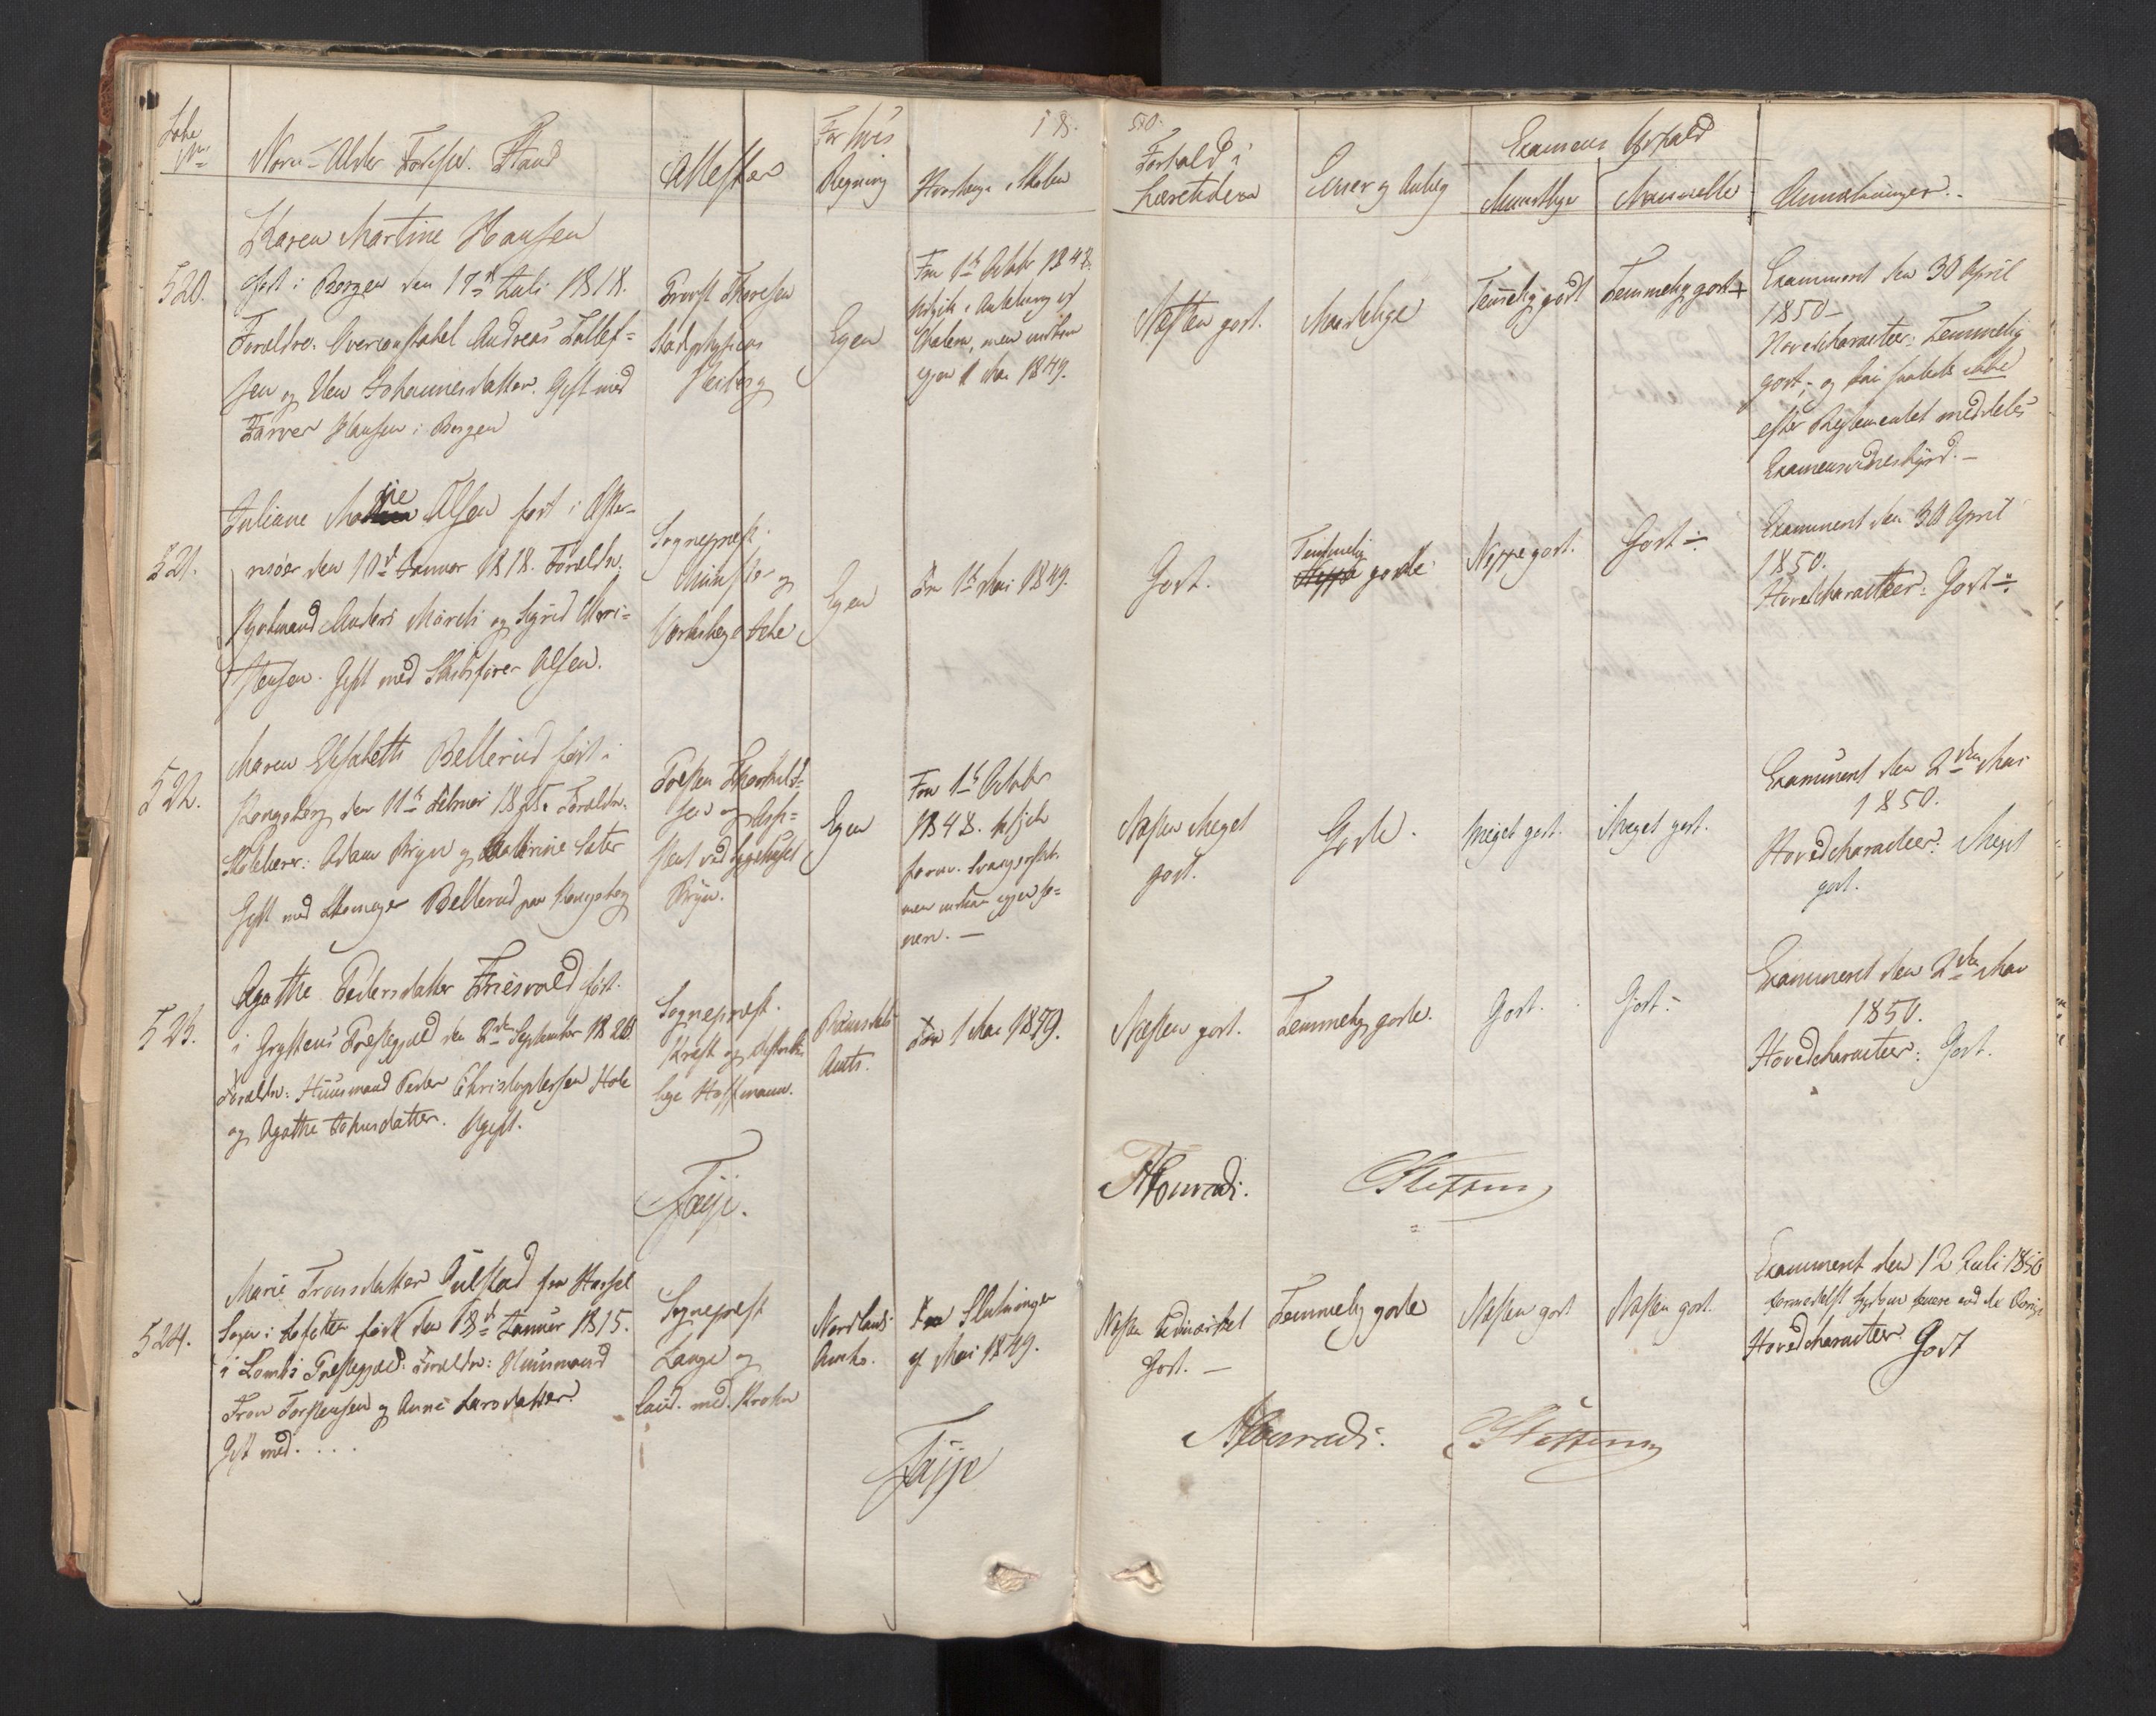 Løbe
No
Navn - Alder Fødested. Stand
Attester
For hvis
Regning
18
Hvorlænge i Skolen
50.
Forhold i
Læretiden
Evner og Anlæg
Examens Udfald
Mundtlige
Manuelle
Anmærkninger.
520.
Karen Martine Hansen
født i Bergen den 17de Juli 1818.
Forældre. Overconstabel Andreas Tollef=
sen og Johannesdatter. Gift med
Farver Hansen i Bergen
Provst Thoresen
Stadsphysicus
Heiberg
Egen
Fra 1ste Octobr 1848.
afgik i Anledning af
Cholera, men indkom
igjen 1 Mai 1849.
Næsten godt.
Maadelige
Temelig godt
Temmelig godt +
Examineret den 30 April
1850 -
Hovedcharacteer: Temmelig
godt, og kan saaledes ikke
efter Reglementet meddeles
Examensvidnesbyrd. -
521.
Juliane Marie Olsen født i Øster=
risøer den 10de Januar 1818. Forældr.
Anders Mørch og Sigrid
Gift med Skibsfører Olsen.
Sognepræst
Münster og
Egen
Fra 1ste Mai 1849.
Godt.
Temmelig
gode.
Neppe godt.
Godt ÷
Examineret den 30 April
1850.
Hovedcharacteer: Godt ÷
522.
Maren Elisabeth Bellerud født i
Kongsberg den 11te Februar Forældr.
Skolelærer: Adam Bryn og Cathrine Sæter
Gift med Skomager Bellerud paa Kongsberg
Presten
sen og Assi=
stent ved Sygehuset
Bryn.
Egen
Fra 1ste Octobr
1848. afgik
formed. Svangerskab.
men indkom igjen se=
nere. -
Næsten Meget
godt.
Gode.
Meget godt.
Meget godt.
Examineret den 2den Mai
1850.
Hovedcharacteer: Meget
godt.
523.
Agathe Pedersdatter Friesvold født.
i Gryttens Præstegjeld den 2den September 1820.
Forældr: Huusmand Peder Christophersen Hole
og Agathe Johnsdatter. Ugift.
Sognepræst.
Kraft og Districts
læge Hoffmann.
Romsdals
Amts.
Fra 1 Mai 1849.
Næsten godt.
Temmelig gode.
Godt.
Godt ÷
Examineret den 2den Mai
1850.
Hovedcharacteer: Godt.
Faye.
AConradi.
524.
Marie Tronsdatter Julstad fra Hassel
Sogn i Lofoten født den 18de Januar 1815.
i Lomb's Præstegjæld. Forældr: Huusmand
Tron Torstensen og Anne Larsdatter.
Gift med. . . .
Sognepræst
Lange og
Cand. med. Krohn
Nordlands
Amts.
Fra Slutningen
af Mai 1849.
Næsten Udmærket
Godt. -
Temmelig gode
Næsten godt
Næsten godt.
Examineret den 12 Juli 1850
formedelst Sygdom senere end de Øvrige
Hovedcharacteer. Godt
Faye
AConradi.